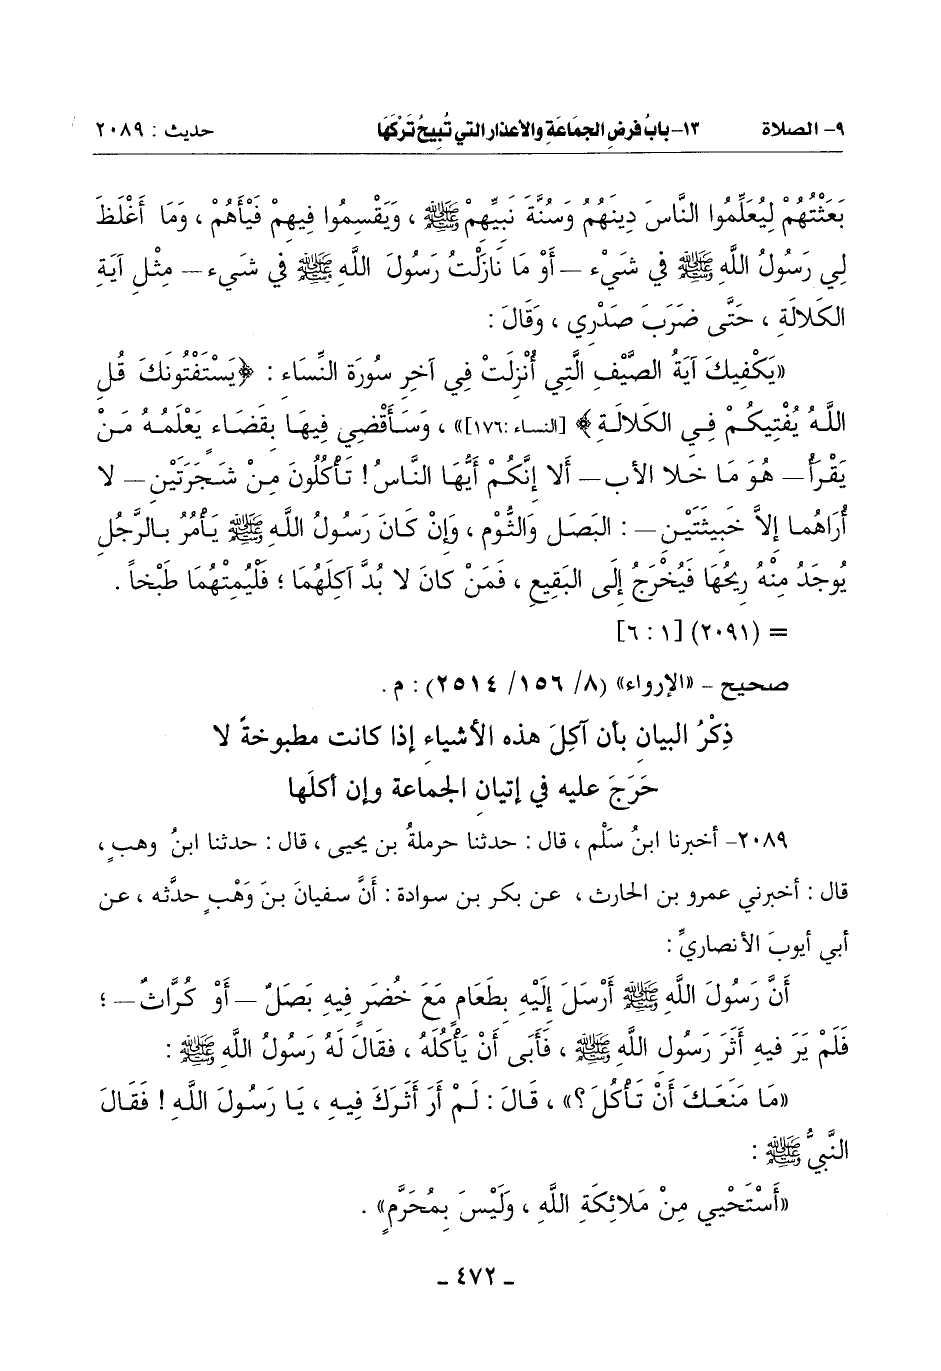 ٩- الصلاة ١٣- بابُ فرضِ الجمَاعَةِ والأعذار التي تُبيحُ تَرْكَهَا حديث : ٢٠٨٩
بَعَثْتُهُمْ لِيُعَلِّمُوا النَّاسَ دِينَهُمْ وَسُنَّةَ نَبِيِّهِمْ ﷺ ، وَيَقْسِمُوا فِيهِمْ فَيْأَهُمْ ، وَمَا أَغْلَظَ
لِي رَسُولُ اللَّهِ ﷺ فِي شَيْءٍ – أَوْ مَا نَازَلْتُ رَسُولَ اللَّهِ ﷺ فِي شَيءٍ – مِثْلِ آيَةِ
الكَلالَةِ ، حَتَّى ضَرَبَ صَدْرِي ، وَقَالَ :
«يَكْفِيكَ آيَةُ الصَّيْفِ الَّتِي أُنْزِلَتْ فِي آخِرِ سُورَةِ النِّسَاءِ : ﴿يَسْتَفْتُونَكَ قُلِ
اللَّهُ يُفْتِيكُمْ فِي الكَلالَةِ﴾ [النساء :١٧٦]» ، وَسَأَقْضِي فِيهَا بِقَضَاءٍ يَعْلَمُهُ مَنْ
يَقْرَأُ – هُوَ مَا خَلا الأب – أَلا إِنَّكُمْ أَيُّهَا النَّاسُ! تَأْكُلُونَ مِنْ شَجَرَتَيْنِ – لا
أُرَاهُما إلاَّ خَبِيثَتَيْنِ – : البَصَلِ وَالثُّومِ ، وَإِنْ كَانَ رَسُولُ اللَّهِ ﷺ يَأْمُرُ بِالرَّجُلِ
يُوجَدُ مِنْهُ رِيحُهَا فَيُخْرَجُ إِلَى البَقِيعِ ، فَمَنْ كَانَ لا بُدَّ آكِلَهُمَا ؛ فَلْيُمِتْهُمَا طَبْخاً .
= (٢٠٩١) [١ : ٦]
صحيح - «الإرواء» (٨/ ١٥٦/ ٢٥١٤) : م .
ذِكْرُ البيانِ بأن آكِلَ هذه الأشياءِ إذا كانت مطبوخةً لا
حَرَجَ عليه في إتيانِ الجماعة وإن أكلَها
٢٠٨٩- أخبرنا ابنُ سَلْم ، قال : حدثنا حرملةُ بن يحيى ، قال : حدثنا ابنُ وهبٍ ،
قال : أخبرني عمرو بن الحارث ، عن بكر بن سوادة : أنَّ سفيانَ بنَ وَهْبٍ حدَّثه ، عن
أبي أيوبَ الأنصاريِّ :
أَنَّ رَسُولَ اللَّهِ ﷺ أَرْسَلَ إِلَيْهِ بِطَعَامٍ مَعَ خُضَرٍ فِيهِ بَصَلٌ – أَوْ كُرَّاثٌ – ؛
فَلَمْ يَرَ فِيهِ أَثَرَ رَسُولِ اللَّهِ ﷺ ، فَأَبَى أَنْ يَأْكُلَهُ ، فَقَالَ لَهُ رَسُولُ اللَّهِ ﷺ :
«مَا مَنَعَكَ أَنْ تَأْكُلَ؟» ، قَالَ : لَمْ أَرَ أَثَرَكَ فِيهِ ، يَا رَسُولَ اللَّهِ ! فَقَالَ
النَّبِيُّ ﷺ :
«أَسْتَحْيِي مِنْ مَلائِكَةِ اللَّهِ ، وَلَيْسَ بِمُحَرَّمٍ» .
- ٤٧٢ -